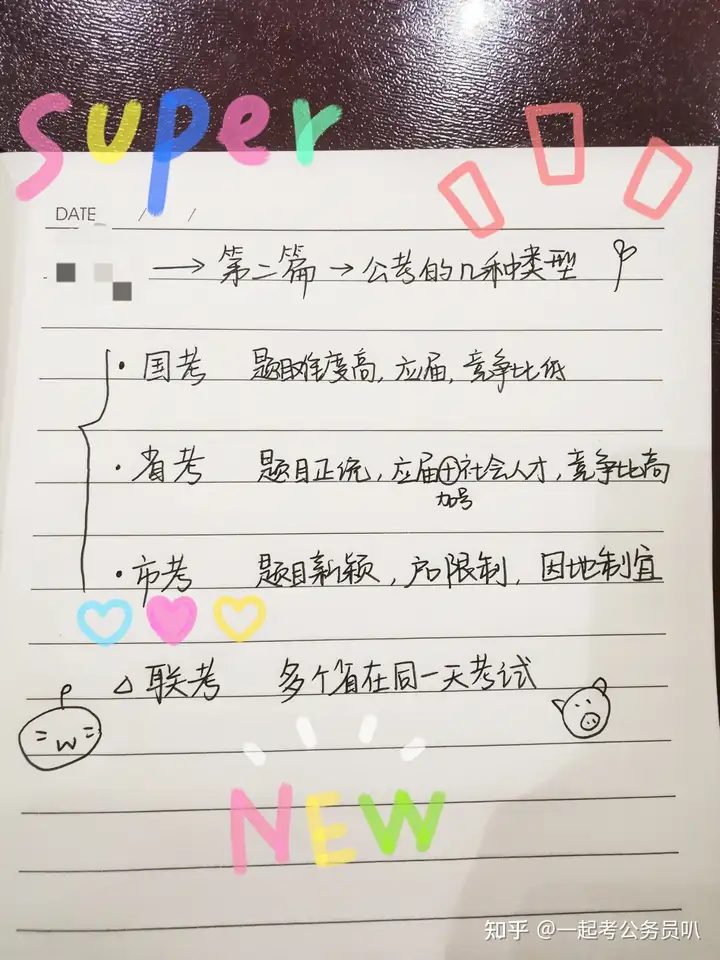 super
DATE / /
→ 第二篇 → 公考的几种类型
· 国考 题目难度高, 应届, 竞争比低
· 省考 题目正统, 应届⊕社会人才, 竞争比高
加号
· 市考 题目新颖, 户口限制, 因地制宜
△ 联考 多个省在同一天考试
NEW
知乎 @一起考公务员叭